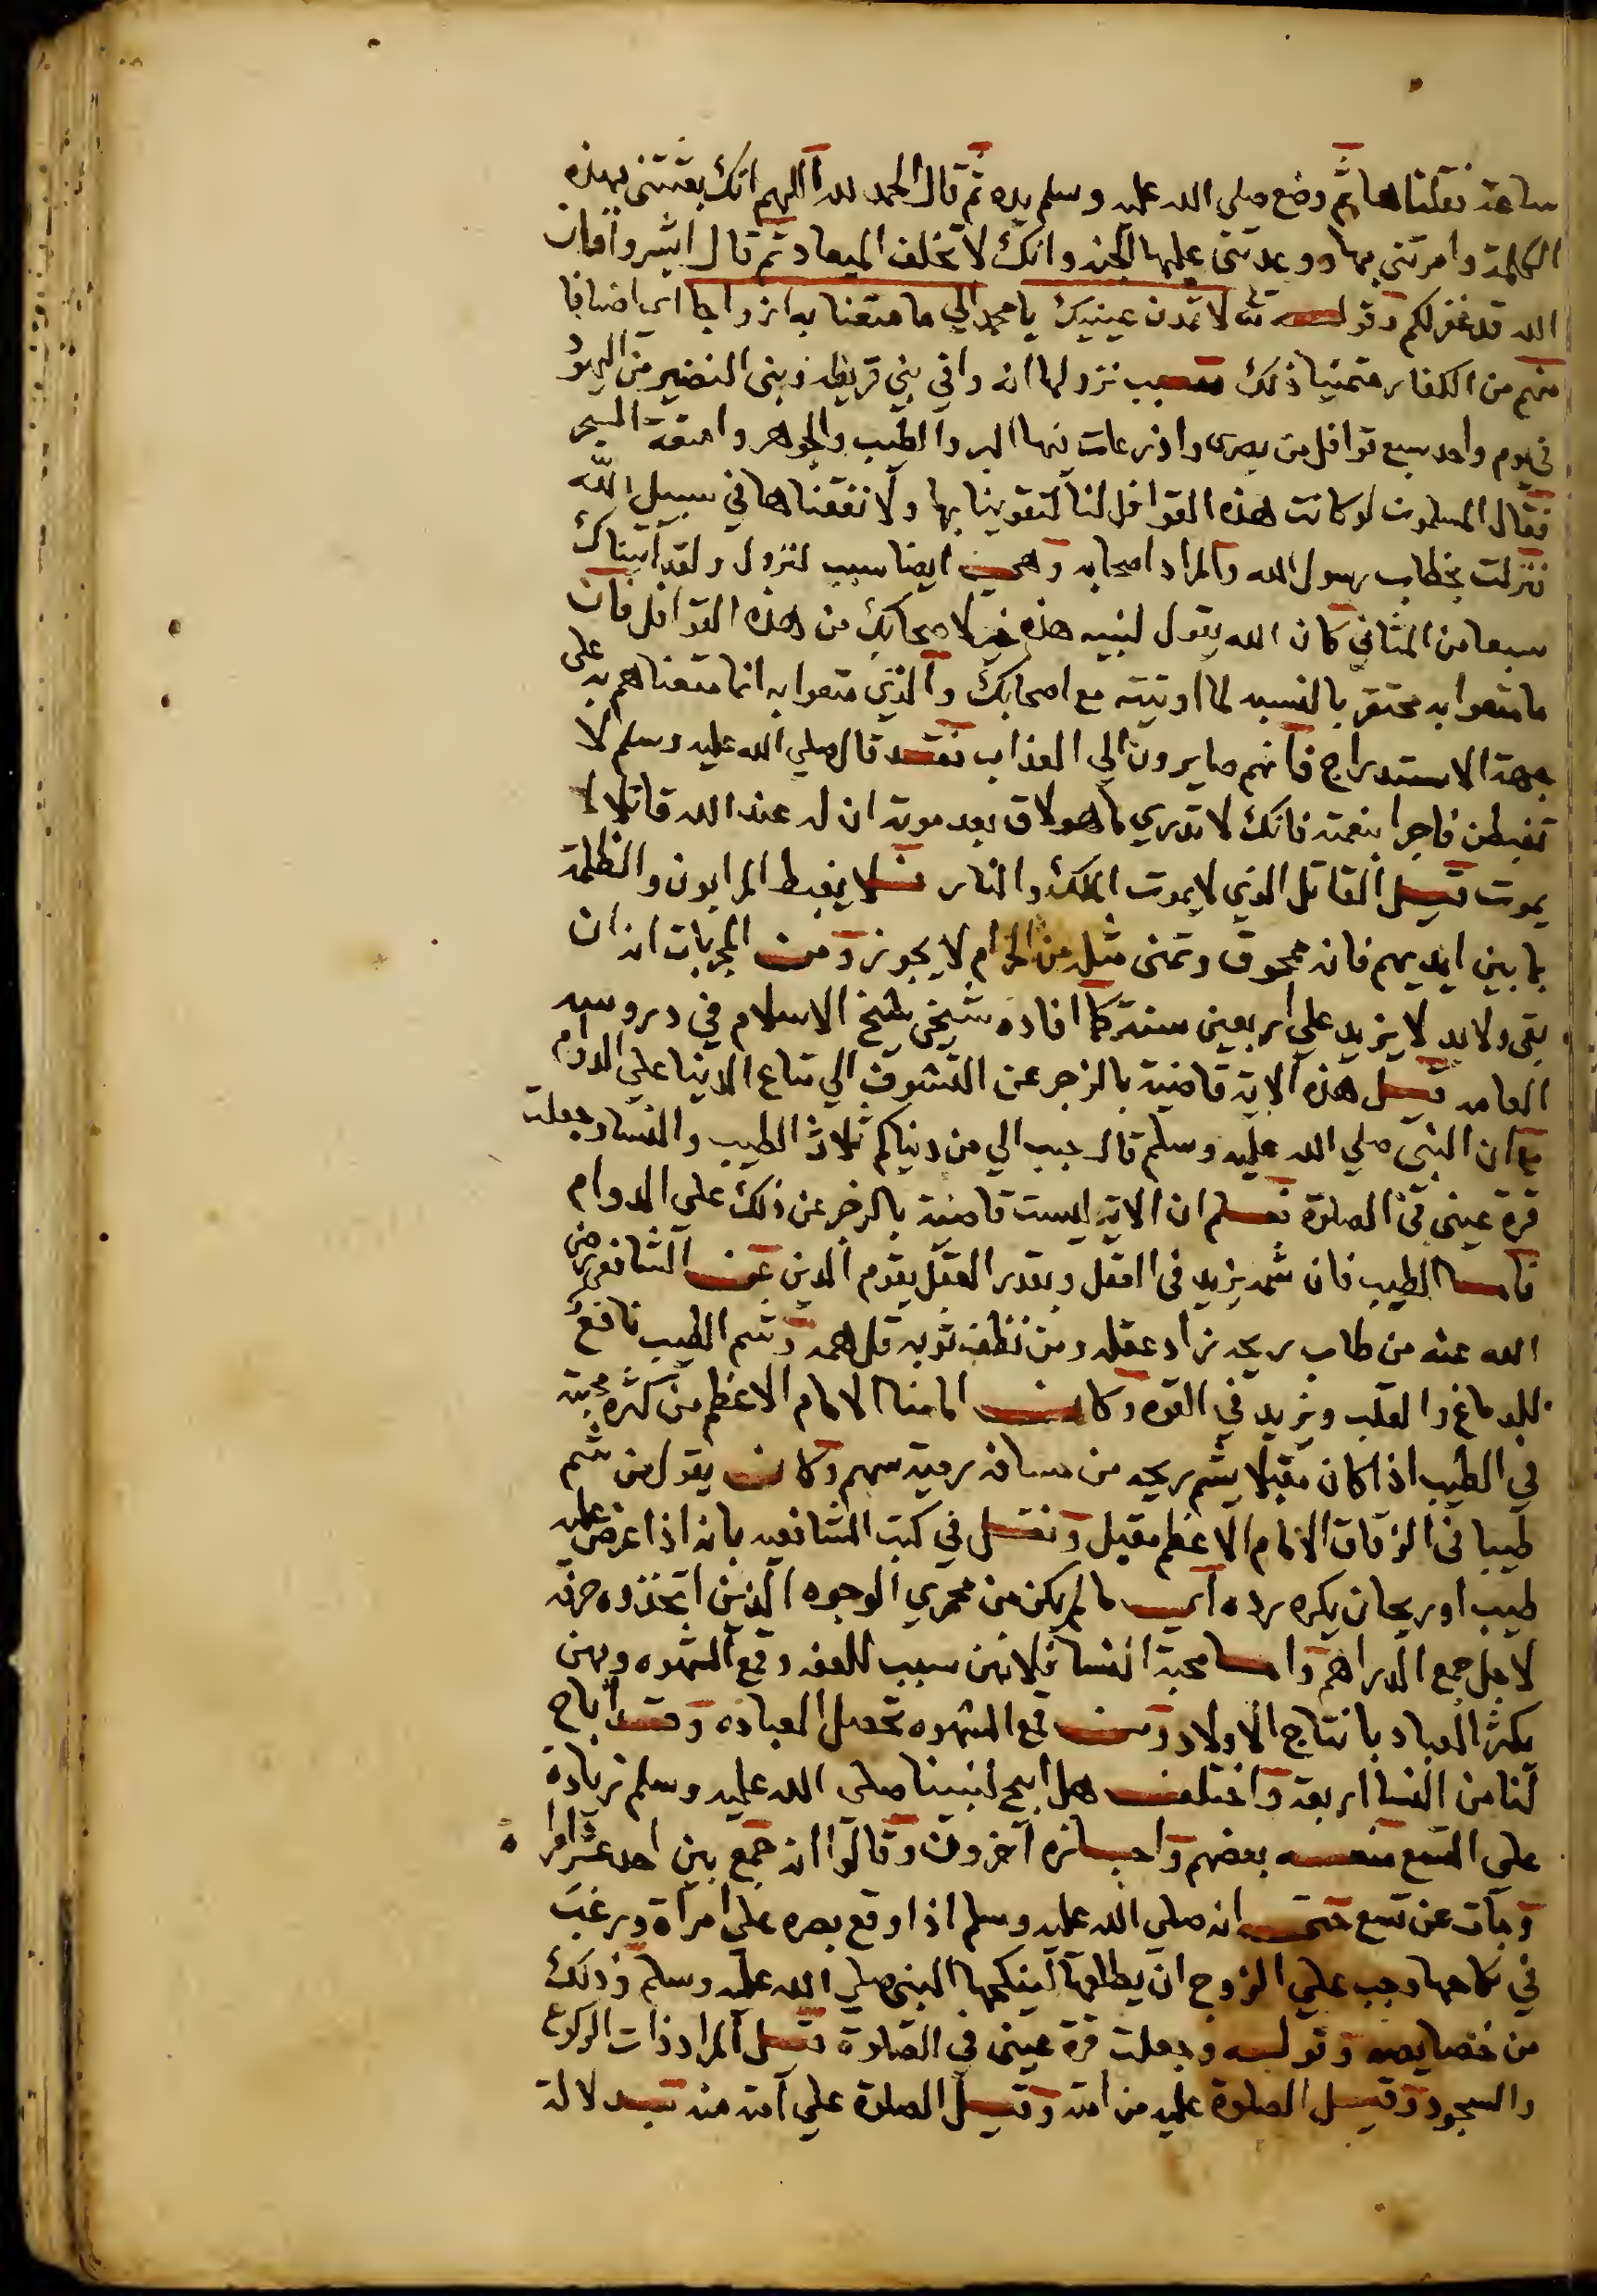 ساعة فقلناها ثم وضع صلى الله عليه وسلم يده ثم قال الحمد لله اللهم انك بعثتنى بهذه
الكلمة وامرتني بها ووعدتني عليها الجنة وانك لا تخلف الميعاد ثم قال ابشروا فان
الله قد غفر لكم وقوله تعالى لا تمدن عينيك يا محمد الي ما متعنا به ازواجا اى اصنافا
منهم من الكفار متمنيا ذلك سبب نزولها انه وافي بني قريظه وبنى النضير من اليهود
في يوم واحد سبع قوافل من بصرى واذرعات فيها البر والطيب والجوهر وامتعة البحر
فقال المسلمون لو كانت هذه القوافل لنا لتقوينا بها ولانفقناها في سبيل الله
فنزلت بخطاب رسول الله والمراد اصحابه وهي ايضا سبب لنزول ولقد آتيناك
سبعا من المثاني كان الله يقول لنبيه هذه خير لاصحابك من هذه القوافل فان
ما متعوا به محتقر بالنسبه لما اوتيته مع اصحابك والذي متعوا به انما متعناهم به على
جهة الاستدراج فانهم صايرون الي العذاب فقد قال صلي الله عليه وسلم لا
تغبطن فاجرا بنعمة فانك لا تدري ما هو لاق بعد موته ان له عند الله قاتلا لا
يموت قيل القاتل الذي لا يموت الملك والنار فلا يغبط المرابون والظلمة
بما بين ايديهم فانه ممحوق وتمنى مثله من الحرام لا يجوز ومن المجربات انه ان
بقى ولا بد لا يزيد علي اربعين سنة كما افاده شيخي شيخ الاسلام في دروسه
العامه قيل هذه الاية قاضية بالزجر عن التشوف الي متاع الدنيا علي الدوام
مع ان النبي صلي الله عليه وسلم قال حبب الي من دنياكم ثلاث الطيب والنسا وجعلت
قرة عيني في الصلوة فعلم ان الاية ليست قاضية بالزجر عن ذلك على الدوام
فاما الطيب فان شمه يزيد في العقل وبقدر العقل يقوم الدين عن الشافعي رضي
الله عنه من طاب ريحه زاد عقله ومن نظف ثوبه قل همه وشم الطيب نافع
للدماغ والقلب ويزيد في القوه وكان امامنا الامام الاعظم من كثرة محبته
في الطيب اذا كان مقبلا يشم ريحه من مسافة رمية سهم وكان يقول من شم
طيبا في الزقاق الامام الاعظم مقبل ونقل في كتب الشافعيه بانه اذا عرض عليه
طيب او ريحان يكره رده اي ما لم يكن من محمري الوجوه الذين اتخذوه حرفة
لاجل جمع الدراهم واما محبة النسا فلانهن سبب للعفه وقمع الشهوه وبهن
يكثر العباد بانتاج الاولاد ومن قمع الشهوه تحصل العباده وقد اباح
لنا من النسا اربعة واختلف هل ابيح لنبينا صلى الله عليه وسلم زيادة
على التسع منعه بعضهم واجازه آخرون وقالوا انه جمع بين احد عشر امراة
ومات عن تسع حتى انه صلى الله عليه وسلم اذا وقع بصره على امراة ورغب
في نكاحها وجب علي الزوج ان يطلقها لينكحها النبي صلي الله عليه وسلم وذلك
من خصايصه وقوله وجعلت قرة عيني في الصلوة قيل المراد ذات الركوع
والسجود وقيل الصلوة عليه من امته وقيل الصلوة علي امته منه بدلالة